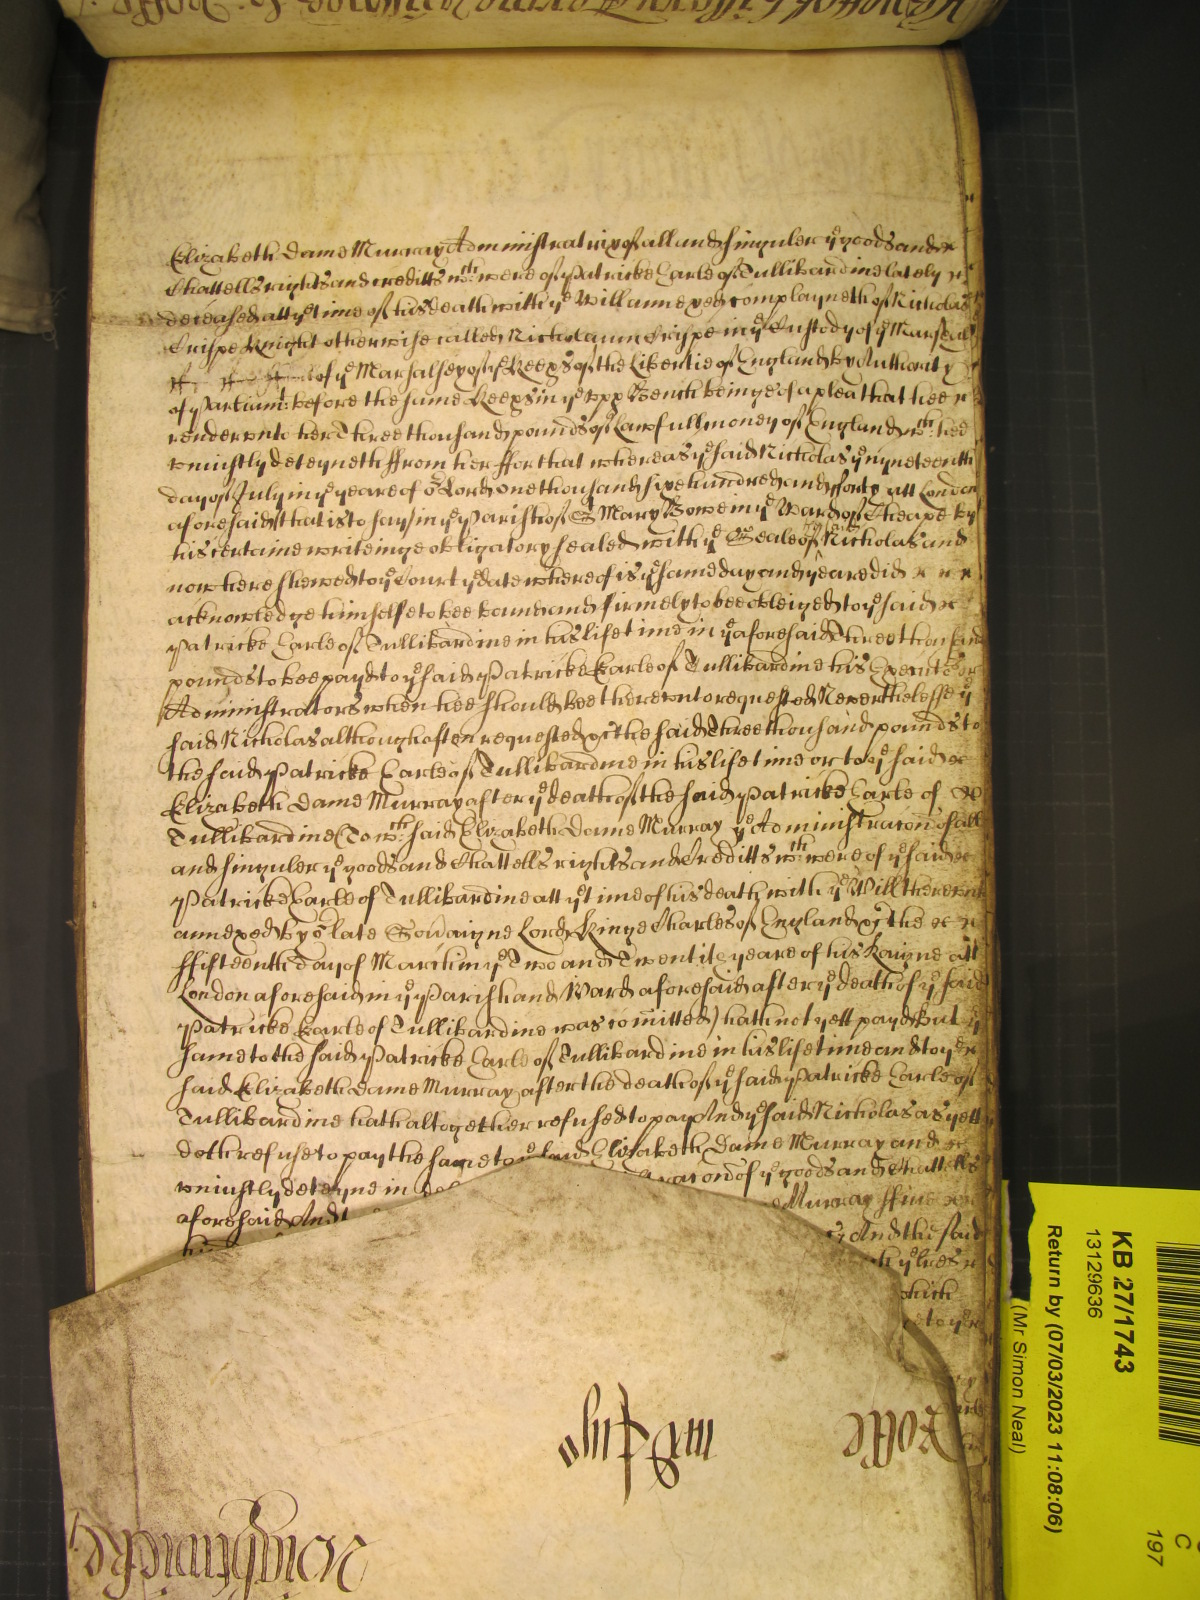 Elizabeth Dame Murray Administratrix of all and singuler ye goods and
Chattells rights and creditts wch: were of Patricke Earle of Tullibardine lately
deceased att ye time of his death with ye Will annexed complayneth of Nicholas
Crispe Knight otherwise called Nicholaum Crispe in ye Custody of ye Marshall
of ye Marsalsey of ye Keeps of the Libertie of England by Authority
of Parliam: before the same Keeps in ye upp Bench beinge of a plea that hee
render unto her Three thousand pounds of Lawfull money of England wch: hee
uniustly deteyneth from her ffor that whereas ye said Nicholas ye nyneteenth
day of July in ye yeare of or Lord one thousand six hundred and forty att London
aforesaid that is to say in ye Parish of St Mary Bowe in ye Ward of Cheape by
his certaine writeinge obligatory sealed with ye Seale of Nicholas and
now here shewed to ye Court ye date whereof is ye same day and yeare did
acknowledge himselfe to bee bound and firmely to bee obleiged to ye said
Patricke Earle of Tullibardine in his life time in ye aforesaid Three thousand
pounds to bee payd to ye said Patricke Earle of Tullibardine his Executors or
Administrators when hee should bee thereunto requested Neverthelesse ye
said Nicholas although often requested &c the said Three thousand pounds to
the said Patricke Earle of Tullibardine in his life time or to ye said
Elizabeth Dame Murray after ye death of the said Patricke Earle of
Tullibardine (To wch: said Elizabeth Dame Murray ye Administracon of all
and singuler ye goods and Chattells rights and Creditts wch: were of ye said
Patricke Earle of Tullibardine att ye time of his death with ye Will thereunto
annexed by or late Soveraigne Lord Kinge Charles of England &c the
ffifteenth day of March in ye Two and Twentith yeare of his Raigne att
London aforesaid in ye Parish and Ward aforesaid after ye death of ye said
Patricke Earle of Tullibardine was comitted) hath not yett payd But ye
same to the said Patricke Earle of Tullibardine in his life time and to ye
said Elizabeth Dame Murray after the death of ye said Patricke Earle of
Tullibardine hath altogether refused to pay And ye said Nicholas as yett
doth refuse to pay the same to ye said Elizabeth Dame Murray and
uniustly deteyne in of ye goods and Chattells
aforesaid And Murray
And the said
Rolle
KB 27/1743
13129636
Return by (07/03/2023 11:08:06)
(Mr Simon Neal)
C
197